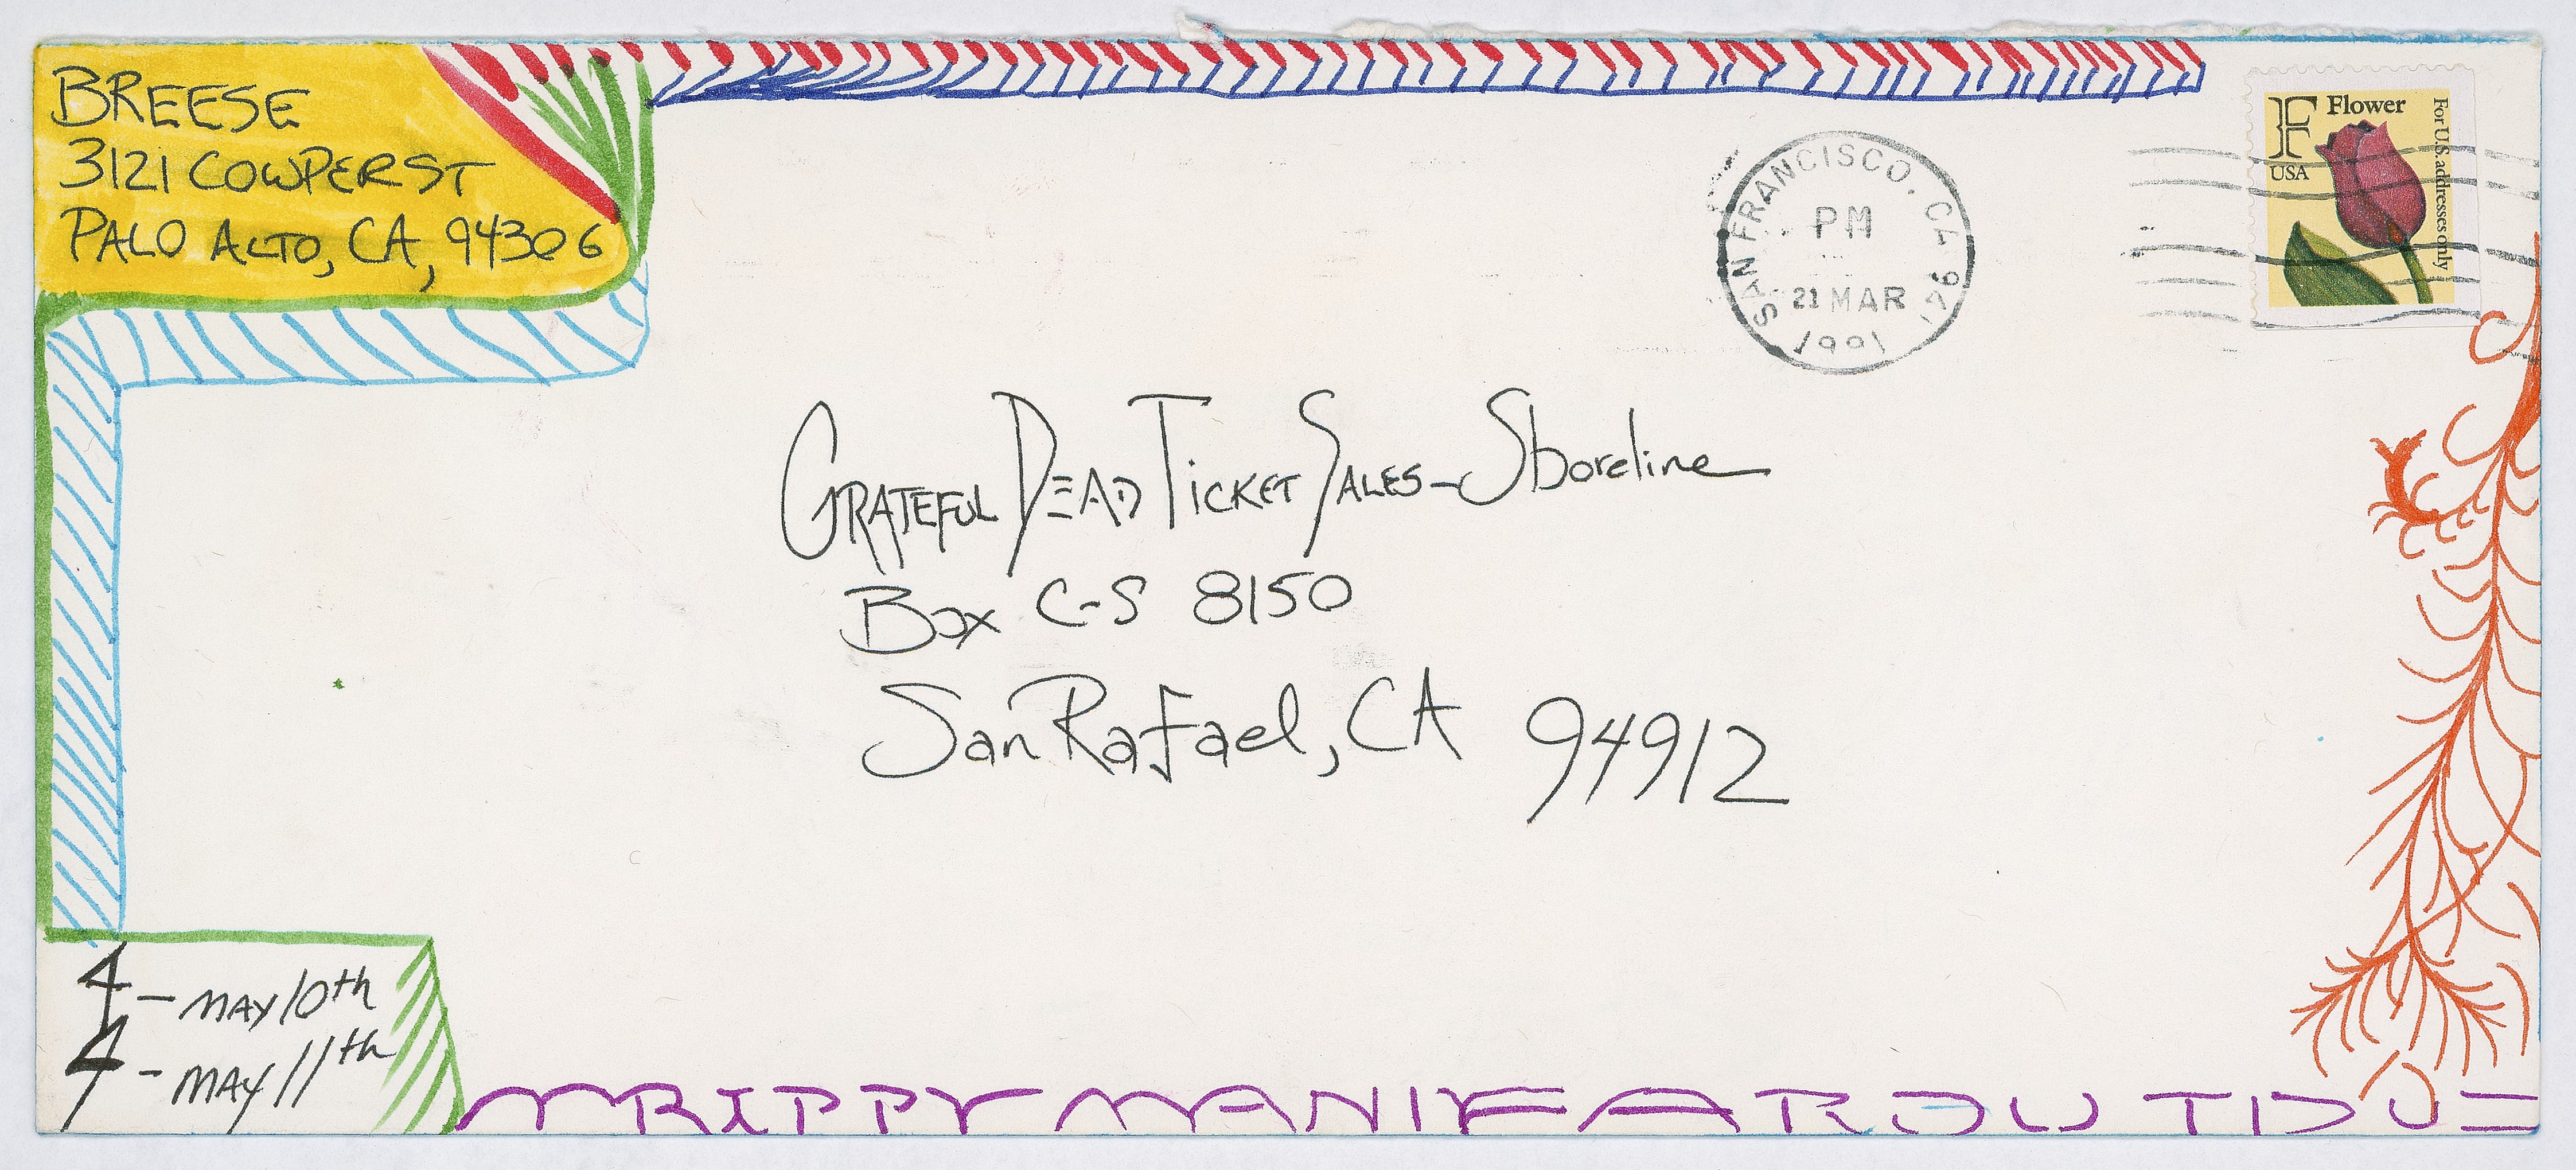 BREESE
3121 COWPER ST
PALO ALTO, CA, 94306
F Flower
USA
For U.S. addresses only
SAN FRANCISCO, CA
PM
21 MAR
1991
GRATEFUL DEAD TICKET SALES - Shoreline
Box C-S 8150
San Rafael, CA 94912
4 - MAY 10th
4 - MAY 11th